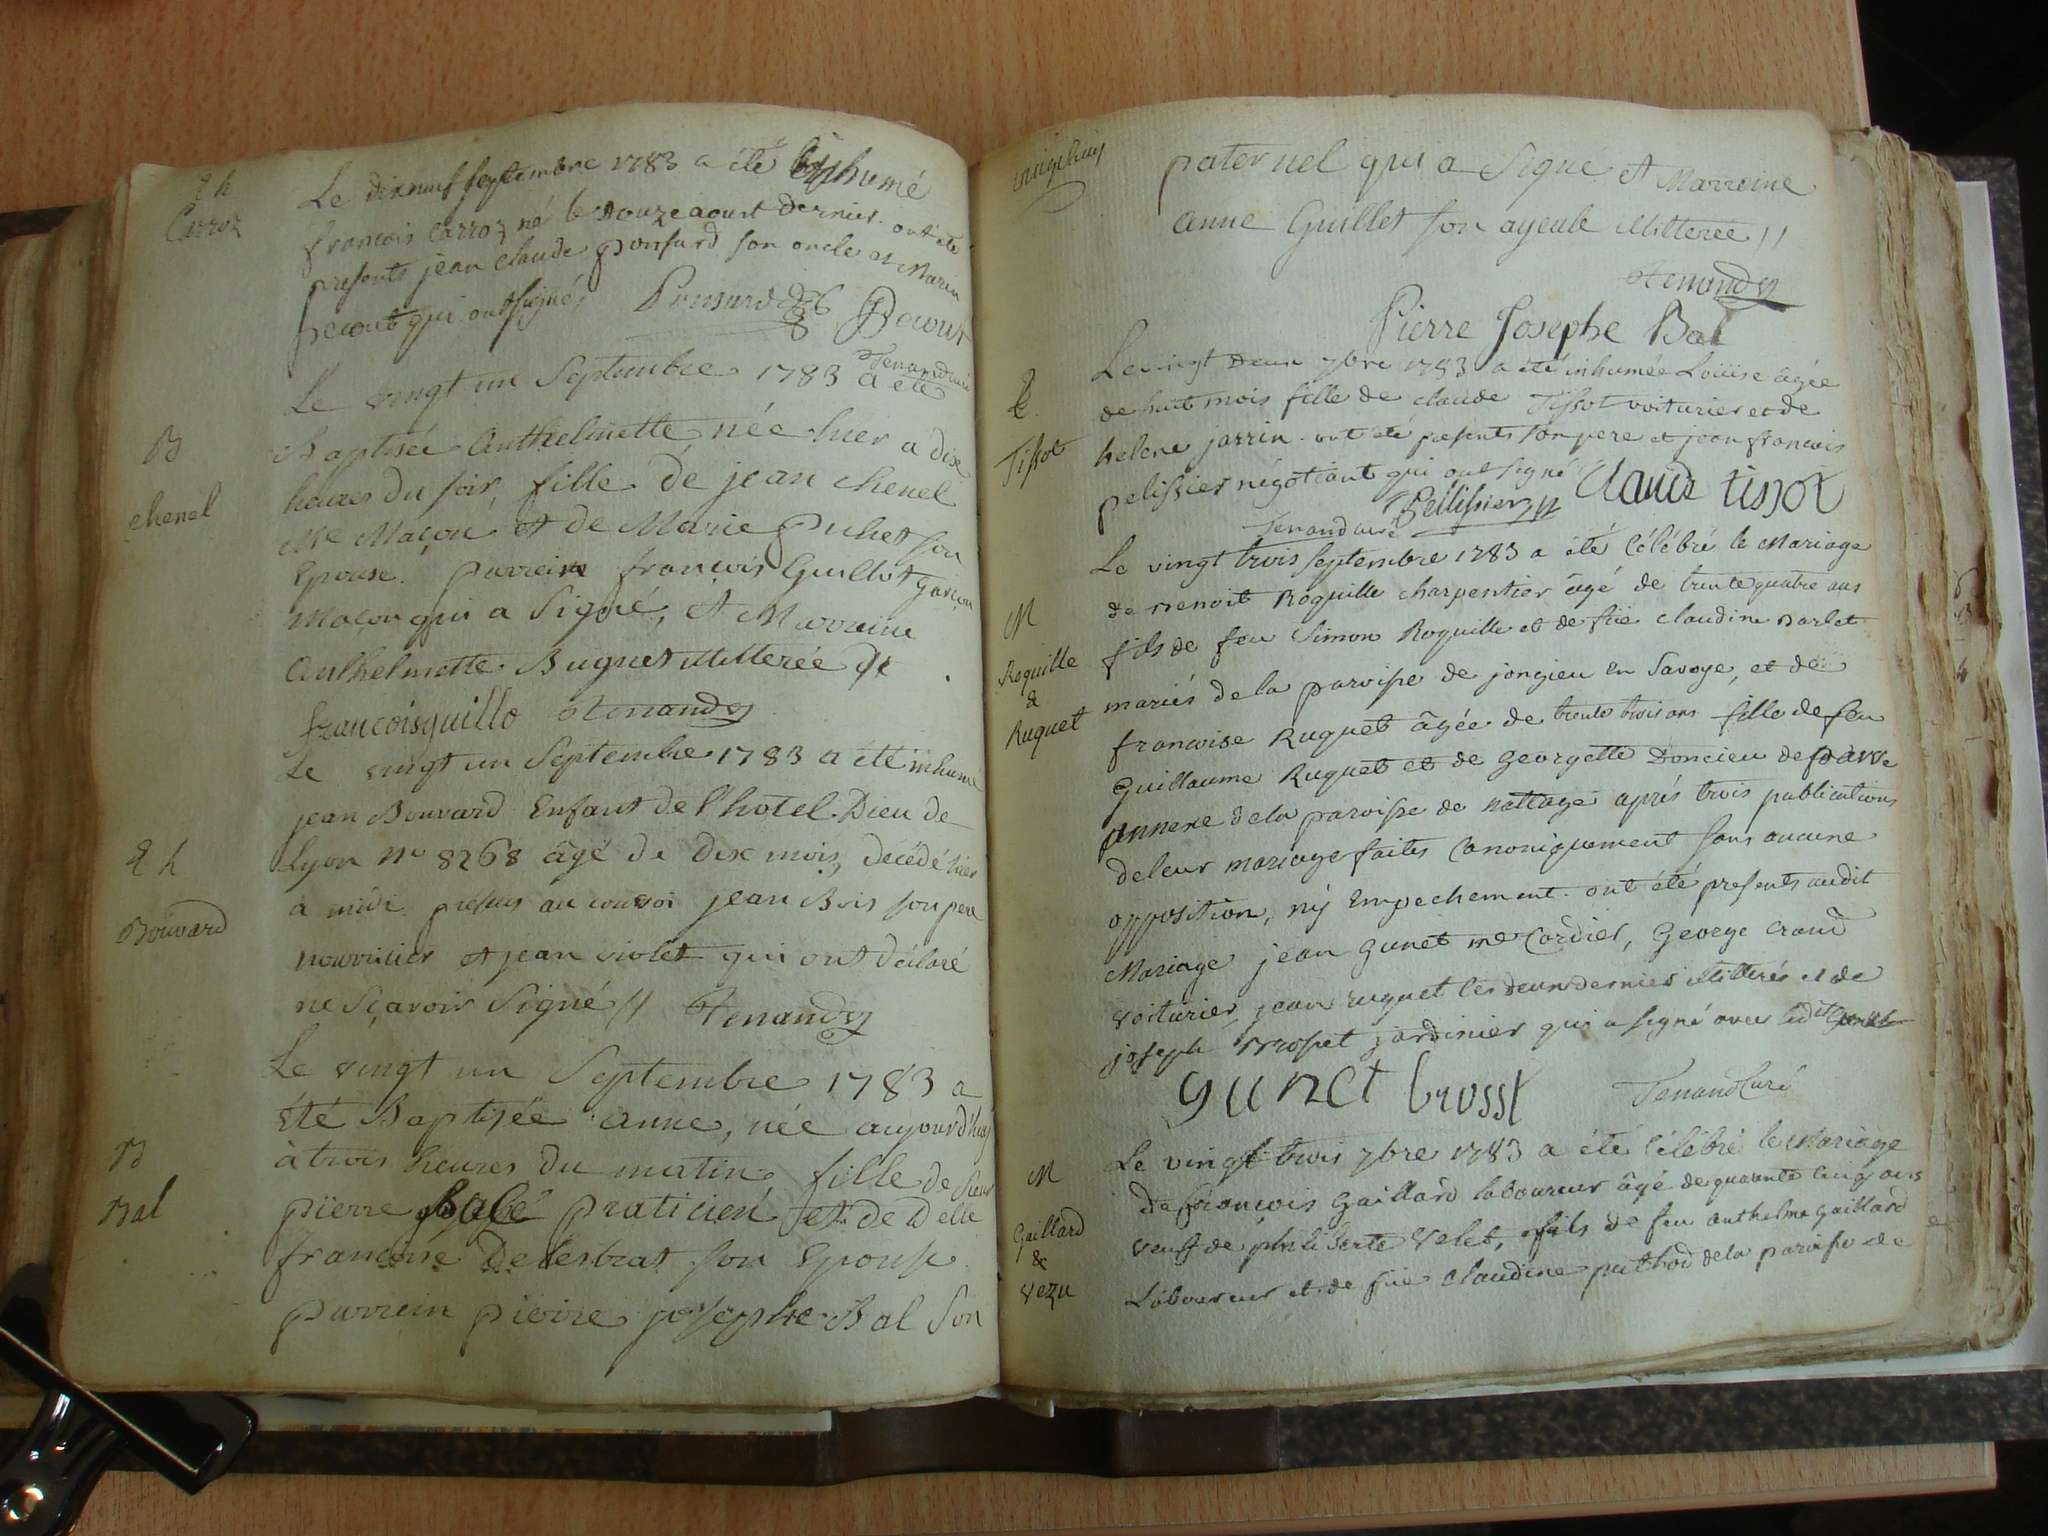 Eh
Carroz
Le dixneuf septembre 1783 a été inhumé
francois Carroz né le douze aoust dernier. ont été
presents jean claude ponsard son oncle et Marin
Decout qui ont signés Ponsard Decout
Tenand curé
Le vingt un Septembre 1783 a été
B
chenel
Baptisée Anthelmette née hier a dix
heures du soir, fille de jean chenel
Me Maçon et de Marie Puchet son
Epouse. parrein françois Guillot garçon
Maçon qui a Signé, et Marreine
Anthelmette Buguet illitterée //
francoisguillo Tenand
Le vingt un Septembre 1783 a été inhumé
jean Bouvard Enfant de l'hotel-Dieu de
Eh
Bouvard
Lyon no 8268 âgé de dix mois, décédé hier
a midi. presens au convoi jean Bois son pere
nourricier et jean violet qui ont déclaré
ne Sçavoir Signé // Tenand
Le vingt un Septembre 1783 a
été Baptisée anne, née aujourd'huy
B
Bal
à trois heures du matin, fille de Sieur
pierre praticien et de Delle
francoise Delestrat son Epouse.
parrein pierre josephe Bal Son
paternel qui a Signé et Marreine
anne Guillet son ayeule illitterée //
Tenand
Pierre Josephe Bal
Le vingt deux 7bre 1783 a été inhumée Louise âgée
E
Tissot
de huit mois fille de claude Tissot voiturier et de
helene jarrin. ont été presents son pere et jean francois
pelissier négotiant qui ont signé Claude tissot
Tenand curé Pellissier
Le vingt trois septembre 1783 a été célébré le Mariage
M
Roquille
&
Ruguet
de Benoit Roquille charpentier âgé de trente quatre ans
fils de feu Simon Roquille et de füe claudine Barlet
mariés de la paroisse de jongieu en Savoye, et de
francoise Ruguet âgée de trente trois ans fille de feu
Guillaume Ruguet et de georgette Doncieu de
de la paroisse de nattage après trois publications
de leur mariage faites Canoniquement sans aucune
opposition, ny Empechement. ont été presents audit
Mariage jean gunet me Cordier, George craud
voiturier, jean ruguet les deux derniers illitterés et de
joseph Brosset jardinier qui a signé avec ledit gunet
gunet brosse Tenand curé
M
Gaillard
&
Vezu
Le vingt trois 7bre 1783 a été célébré le Mariage
de françois Gaillard laboureur âgé de quarante cinq ans
veuf de philiberte Velet, fils de feu anthelme gaillard
Laboureur et de füe claudine puthod de la paroisse de